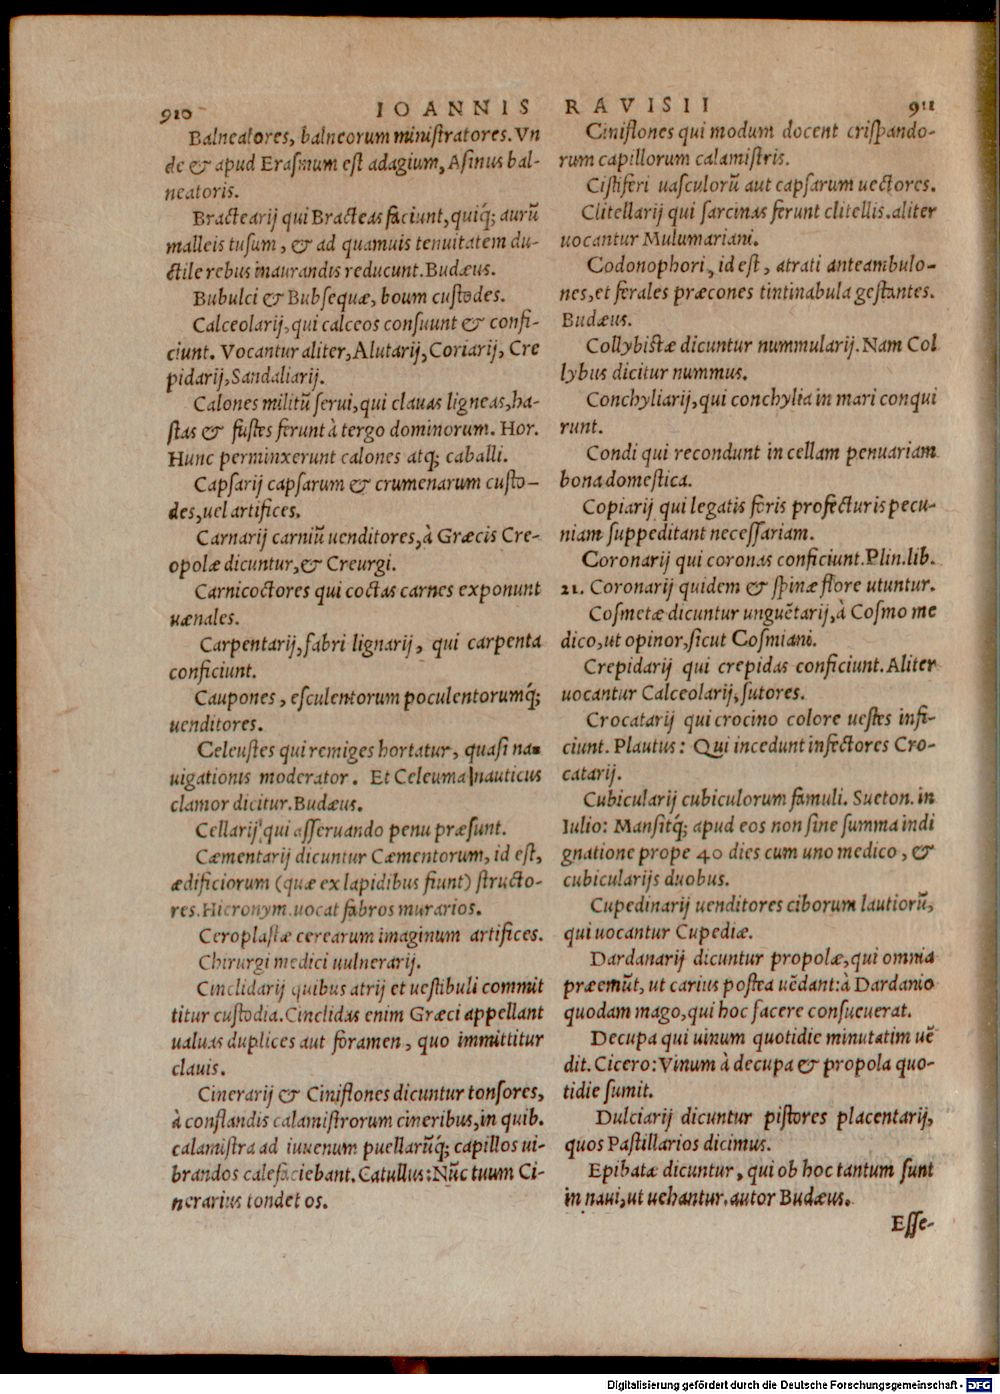 910 IOANNIS RAVISII 911
Balneatores, balneorum ministratores. Vn
de & apud Erasmum est adagium, Asinus bal-
neatoris.
Bractearij qui Bracteas faciunt, quiq́; aurũ
malleis tusum, & ad quamuis tenuitatem du-
ctile rebus inaurandis reducunt. Budæus.
Bubulci & Bubsequæ, boum custodes.
Calceolarij, qui calceos consuunt & confi-
ciunt. Vocantur aliter, Alutarij, Coriarij, Cre
pidarij, Sandaliarij.
Calones militũ serui, qui clauas ligneas, ha-
stas & fustes ferunt à tergo dominorum. Hor.
Hunc perminxerunt calones atq; caballi.
Capsarij capsarum & crumenarum custo-
des, uel artifices.
Carnarij carniũ uenditores, à Græcis Cre-
opolæ dicuntur, & Creurgi.
Carnicoctores qui coctas carnes exponunt
uænales.
Carpentarij, fabri lignarij, qui carpenta
conficiunt.
Caupones, esculentorum poculentorumq́;
uenditores.
Celeustes qui remiges hortatur, quasi na-
uigationis moderator. Et Celeuma nauticus
clamor dicitur. Budæus.
Cellarij qui asseruando penu præsunt.
Cæmentarij dicuntur Cæmentorum, id est,
ædificiorum (quæ ex lapidibus fiunt) structo-
res. Hieronym. uocat fabros murarios.
Ceroplastæ cerearum imaginum artifices.
Chirurgi medici uulnerarij.
Cinclidarij quibus atrij et uestibuli commit
titur custodia. Cinclidas enim Græci appellant
ualuas duplices aut foramen, quo immittitur
clauis.
Cinerarij & Ciniflones dicuntur tonsores,
à conflandis calamistrorum cineribus, in quib.
calamistra ad iuuenum puellarũq́; capillos ui-
brandos calefaciebant. Catullus: Nũc tuum Ci-
nerarius tondet os.
Ciniflones qui modum docent crispando-
rum capillorum calamistris.
Cistiferi uasculorũ aut capsarum uectores.
Clitellarij qui sarcinas ferunt clitellis. aliter
uocantur Mulumariani.
Codonophori, id est, atrati anteambulo-
nes, et ferales præcones tintinabula gestantes.
Budæus.
Collybistæ dicuntur nummularij. Nam Col
lybus dicitur nummus.
Conchyliarij, qui conchylia in mari conqui
runt.
Condi qui recondunt in cellam penuariam
bona domestica.
Copiarij qui legatis foris profecturis pecu-
niam suppeditant necessariam.
Coronarij qui coronas conficiunt. Plin. lib.
21. Coronarij quidem & spinæ flore utuntur.
Cosmetæ dicuntur unguẽtarij, à Cosmo me
dico, ut opinor, sicut Cosmiani.
Crepidarij qui crepidas conficiunt. Aliter
uocantur Calceolarij, sutores.
Crocatarij qui crocino colore uestes infi-
ciunt. Plautus: Qui incedunt infectores Cro-
catarij.
Cubicularij cubiculorum famuli. Sueton. in
Iulio: Mansitq́; apud eos non sine summa indi
gnatione prope 40 dies cum uno medico, &
cubicularijs duobus.
Cupedinarij uenditores ciborum lautiorũ,
qui uocantur Cupediæ.
Dardanarij dicuntur propolæ, qui omnia
præemũt, ut carius postea uẽdant: à Dardanio
quodam mago, qui hoc facere consueuerat.
Decupa qui uinum quotidie minutatim uẽ
dit. Cicero: Vinum à decupa & propola quo-
tidie sumit.
Dulciarij dicuntur pistores placentarij,
quos Pastillarios dicimus.
Epibatæ dicuntur, qui ob hoc tantum sunt
in naui, ut uehantur. autor Budæus.
Esse-
Digitalisierung gefördert durch die Deutsche Forschungsgemeinschaft - DFG